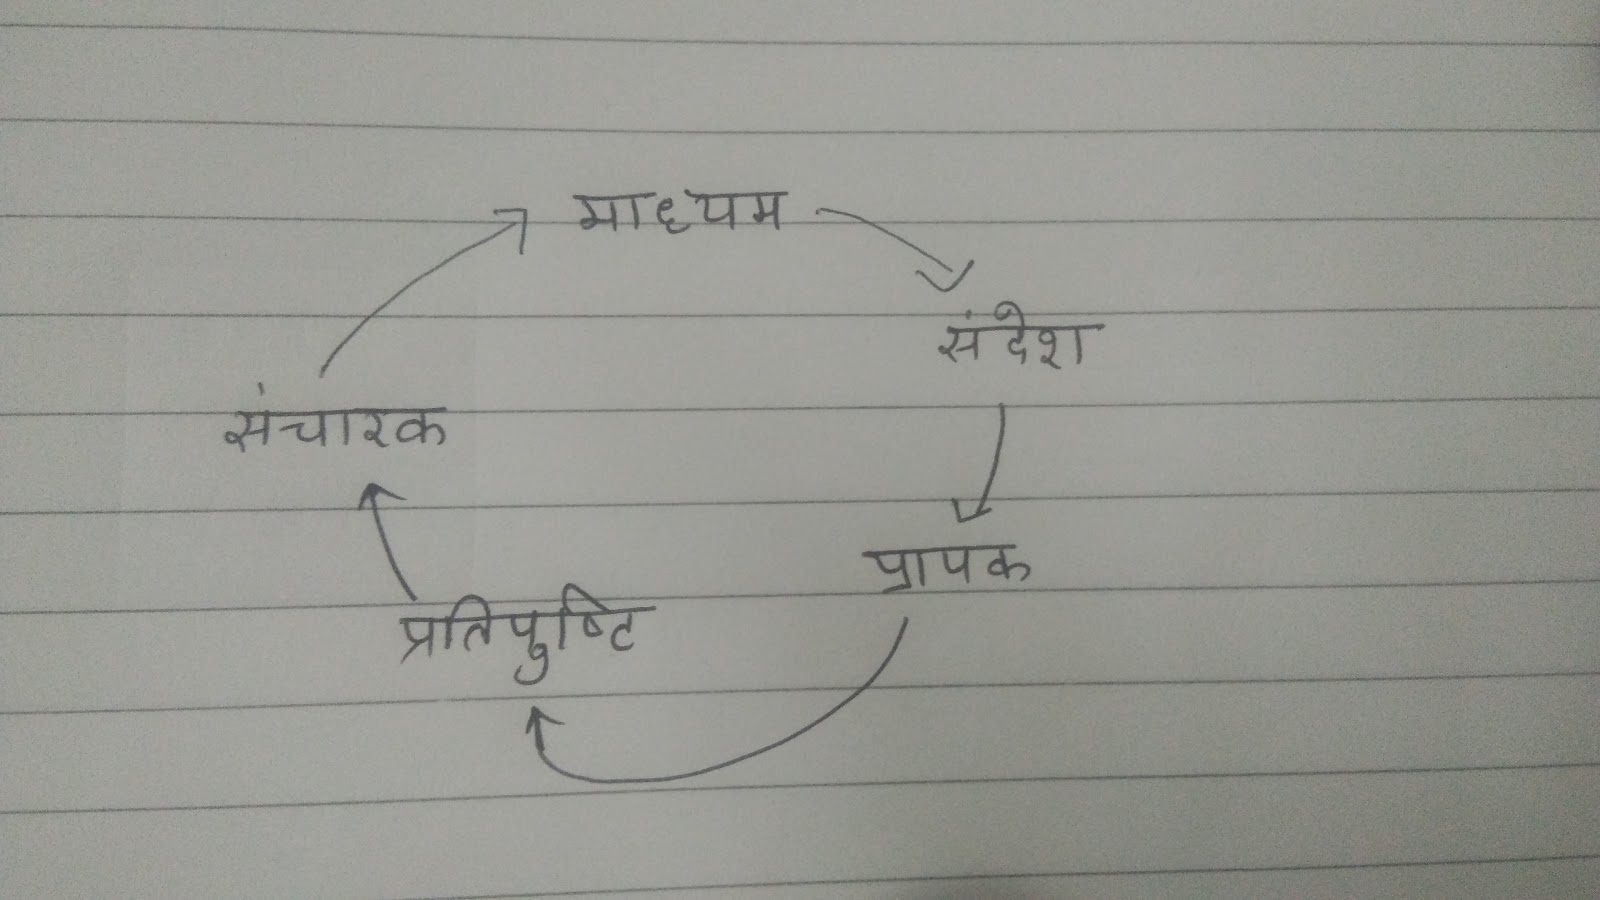 माध्यम
संदेश
संचारक
प्रापक
प्रतिपुष्टि